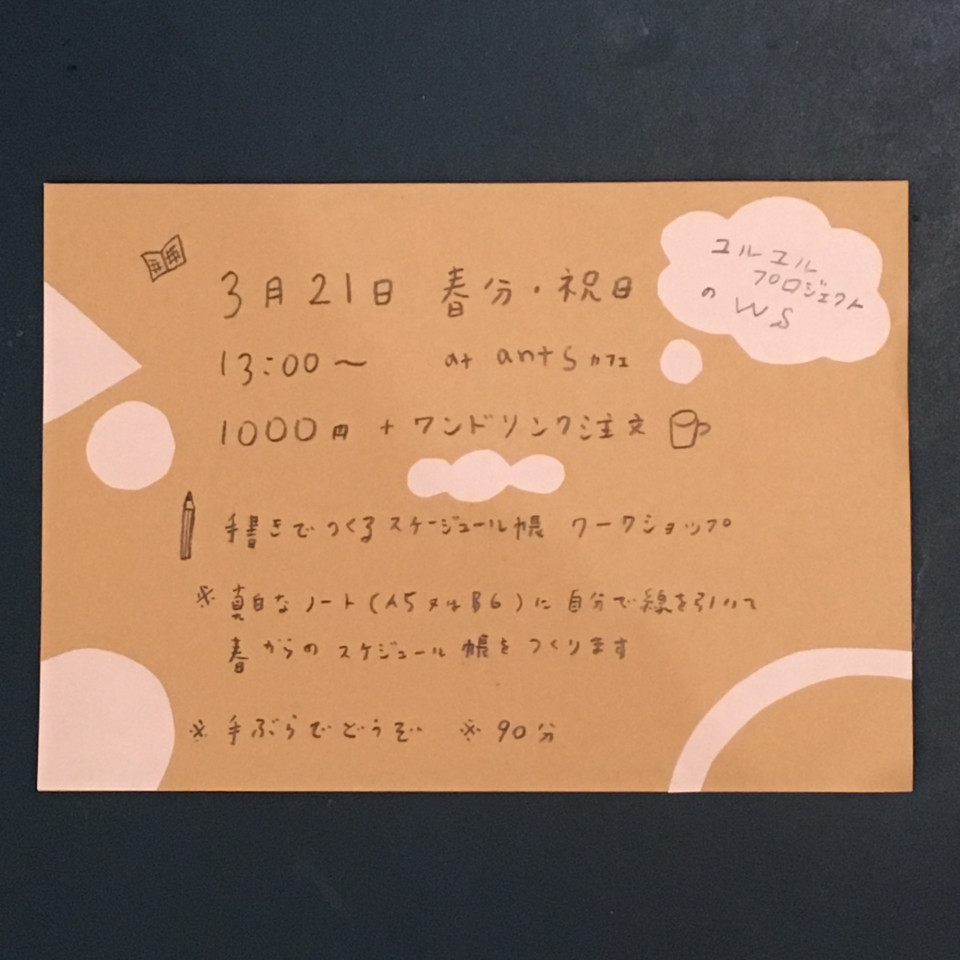 3月21日 春分・祝日
ユルユル
プロジェクト
の WS
13:00〜 at ants カフェ
1000円 + ワンドリンク注文
手書きでつくるスケージュール帳 ワークショップ
※ 真白なノート(A5又はB6)に自分で線を引いて
春からのスケジュール帳をつくります
※ 手ぶらでどうぞ ※ 90分